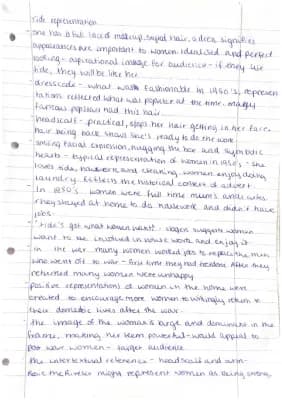 Tide representation
- she has a full face of makeup, styled hair, a dress signifies
appearances are important to women. Idealised and perfect
looking - aspirational image for audience - if they use
tide, they will be like her.
- dress code - what was fashionable in 1950's, represen
tations reflected what was popular at the time. many
famous had this hair.
- headscarf - practical, stops her hair getting in her face.
Hair being back shows she's ready to do the work.
- smiling facial expression, hugging the box and symbolic
hearts - typical representation of women in 1950's - she
loves tide, housework and cleaning. women enjoy doing
laundry. Reflects the historical context of advert.
- In 1950's women were full time mums and wives
They stayed at home to do housework and didn't have
jobs.
- 'Tide's got what women want!' - slogan suggests women
want to be involved in house work and enjoy it
- in the war many women worked jobs to replace the men
who went off to war - first time they had freedom. After they
returned many women were unhappy.
- positive representations of women in the home were
created to encourage more women to willingly return to
their domestic lives after the war.
- The image of the woman is large and dominant in the
frame, making her seem powerful - would appeal to
post war women - target audience.
- The intertextual reference - headscarf and arm -
Rosie the Riveter might represent women as being strong,